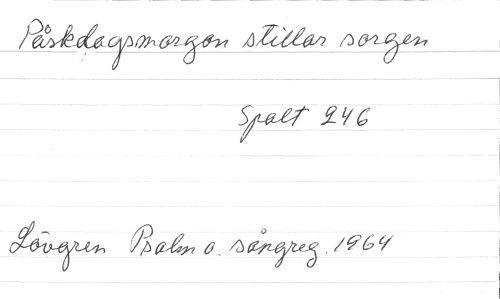 Påskdagsmorgon stillar sorgen
Spalt 246
Lövgren Psalm o. sångreg. 1964